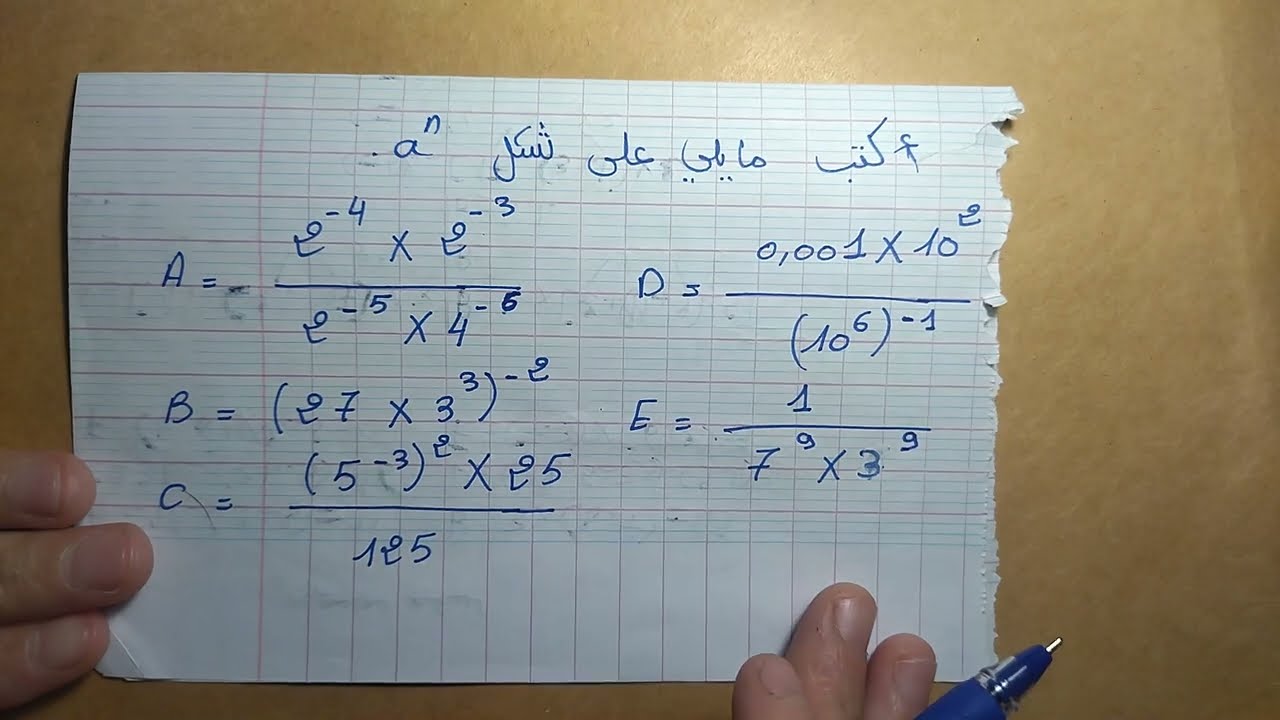 أكتب مايلي على شكل aⁿ.
A = (2⁻⁴ × 2⁻³) / (2⁻⁵ × 4⁻⁵)
D = (0,001 × 10²) / (10⁶)⁻¹
B = (27 × 3³)⁻²
E = 1 / (7⁹ × 3⁹)
C = ((5⁻³)² × 25) / 125